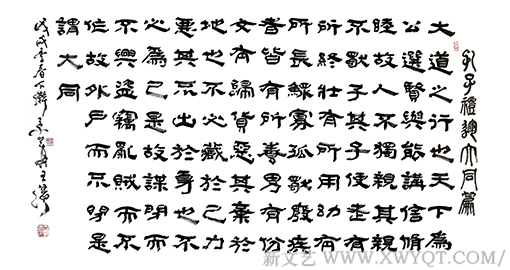 孔子禮運大同篇
大道之行也天下為
公選賢與能講信脩
睦故人不獨親其親
不獨子其子使老有
所終壯有所用幼有
所長鰥寡孤獨廢疾
者皆有所養男有分
女有歸貨惡其棄於
地也不必藏於己力
惡其不出於身也不
必為己是故謀閉而
不興盜竊亂賊而不
作故外戶而不閉是
謂大同
戊戌春下澣
新文艺/WWW.XWYQT.COM/